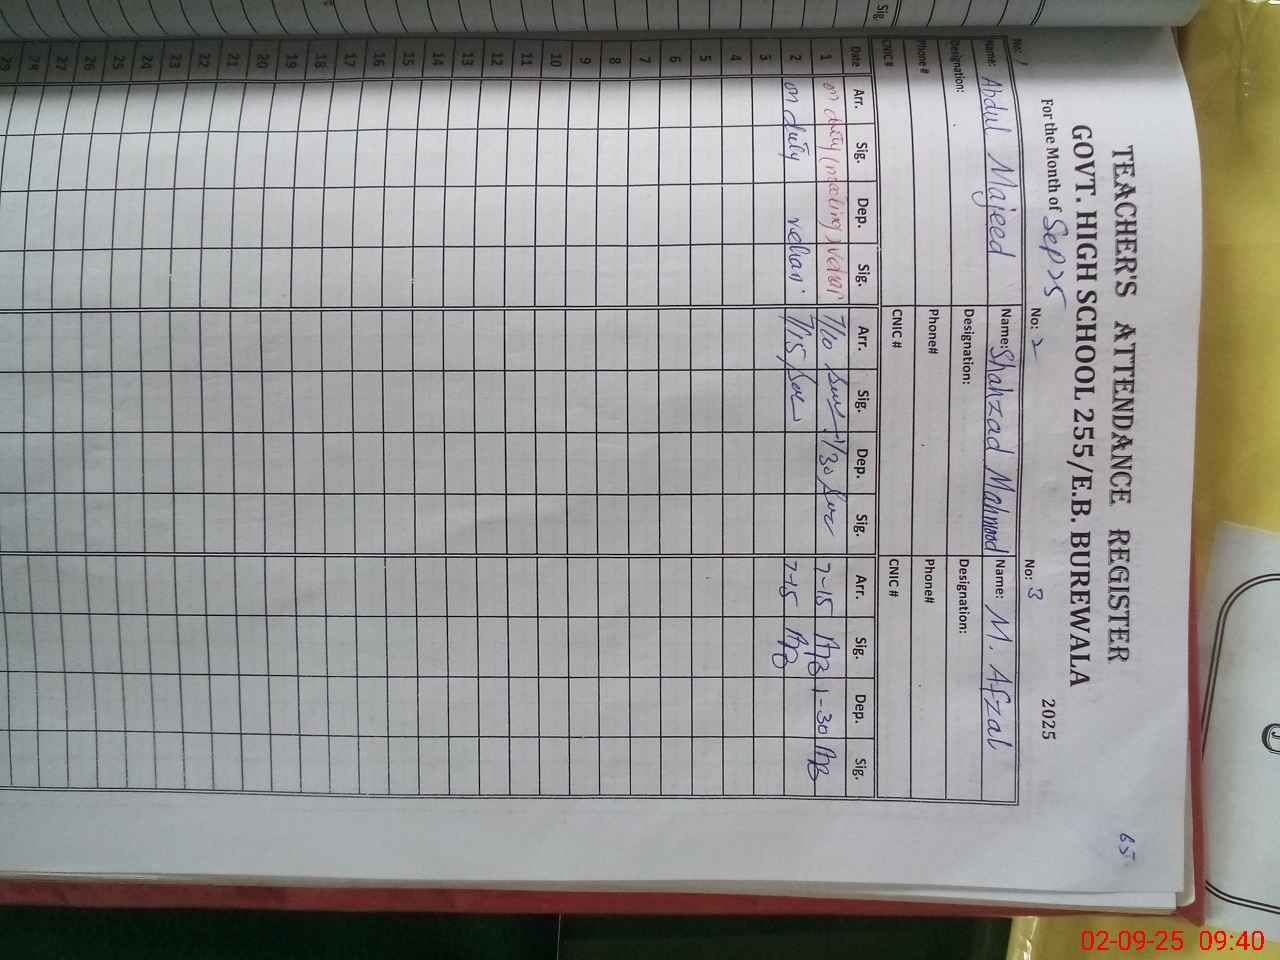 65
TEACHER'S ATTENDANCE REGISTER
GOVT. HIGH SCHOOL 255/E.B. BUREWALA
For the Month of Sep 25 2025
No: 1 No: 2 No: 3
Name: Abdul Majeed Name: Shahzad Mahmood Name: M. Afzal
Designation: Designation: Designation:
Phone # Phone# Phone#
CNIC# CNIC # CNIC #
Date Arr. Sig. Dep. Sig. Arr. Sig. Dep. Sig. Arr. Sig. Dep. Sig.
1 on duty (meeting) 7/10 1/30 7-15 AB 1-30 AB
2 on duty vehari 7/15 7-15 AB
3
4
5
6
7
8
9
10
11
12
13
14
15
16
17
18
19
20
21
22
23
24
25
26
27
28
29
Sig.
02-09-25 09:40